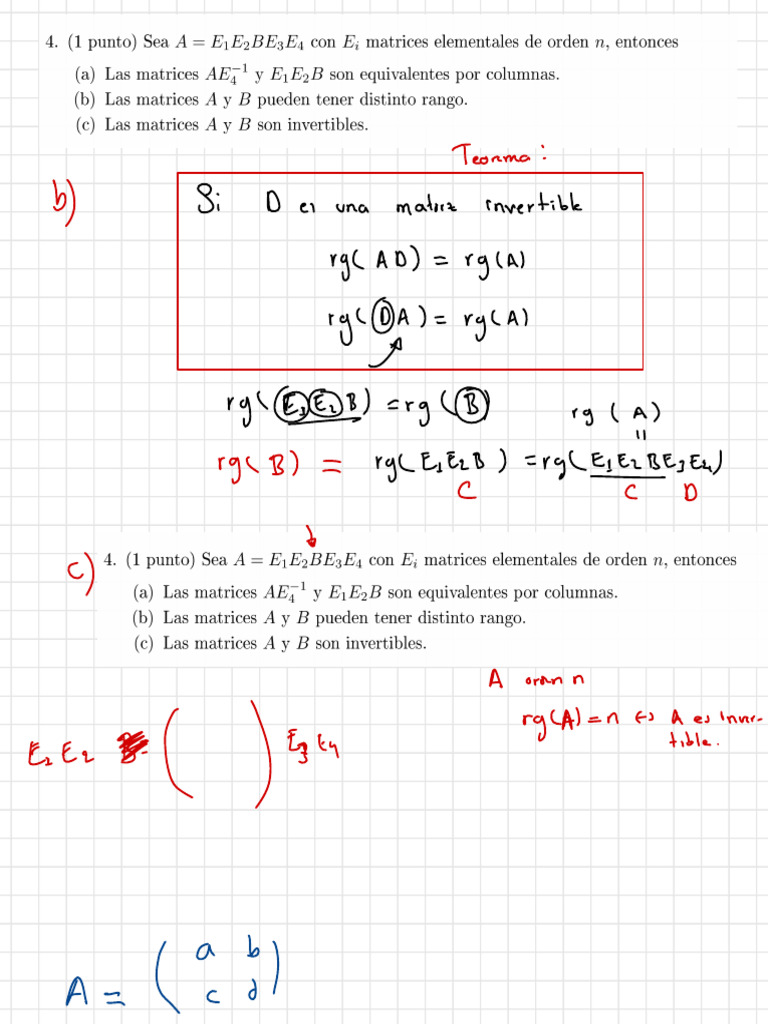 4. (1 punto) Sea A = E₁E₂BE₃E₄ con Eᵢ matrices elementales de orden n, entonces
(a) Las matrices AE₄⁻¹ y E₁E₂B son equivalentes por columnas.
(b) Las matrices A y B pueden tener distinto rango.
(c) Las matrices A y B son invertibles.
Teorma:
b)
Si D es una matriz invertible
rg(AD) = rg(A)
rg(DA) = rg(A)
rg(E₁E₂B) = rg(B)
rg(A)
=
rg(B) = rg(E₁E₂B) = rg(E₁E₂BE₃E₄)
C C D
c)
4. (1 punto) Sea A = E₁E₂BE₃E₄ con Eᵢ matrices elementales de orden n, entonces
(a) Las matrices AE₄⁻¹ y E₁E₂B son equivalentes por columnas.
(b) Las matrices A y B pueden tener distinto rango.
(c) Las matrices A y B son invertibles.
A n
rg(A) = n ↔ A es inver-
tible.
E₁E₂ ( ) E₃E₄
A = ( a b
c d )